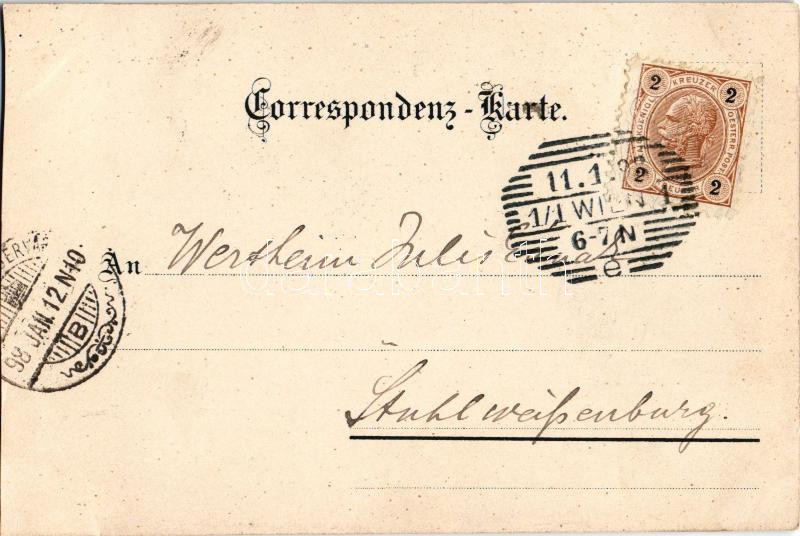 Correspondenz-Karte.
2 KREUZER 2
OESTERR. POST
2 2
11.1.98
1/1 WIEN 1
6-7 N
e
An Wertheim Julis
98 JAN. 12. N10.
B
Stuhlweißenburg.